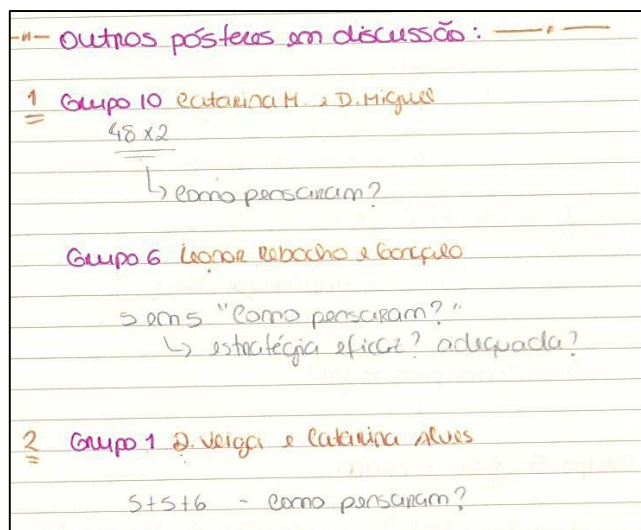 -"- Outros pósteres em discussão: —"—
1 Grupo 10 Catarina M. e D. Miguel
48 x 2
↳ como pensaram?
Grupo 6 Leonor Rebocho e Gonçalo
5 em 5 "Como pensaram?"
↳ estratégia eficaz? adequada?
2 Grupo 1 D. Veiga e Catarina Alves
5+5+6 - como pensaram?